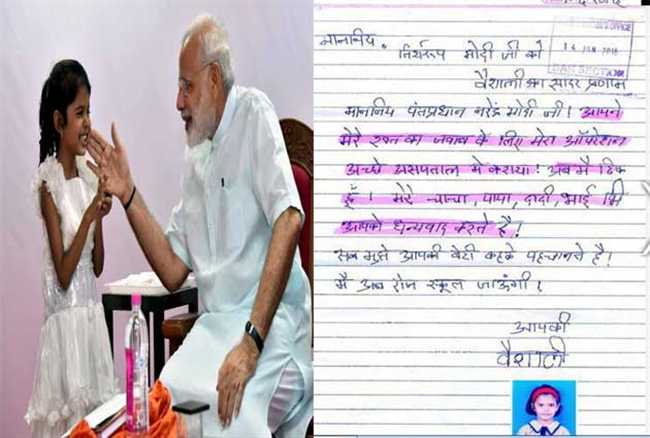 OFFICE
माननिय.
मोदी जी को
वैशाली का सादर प्रणाम
माननिय पंतप्रधान नरेंद्र मोदी जी! आपने
मेरे खत का जवाब के लिए मेरा ऑपरेशान
अच्छे असपताल मे कराया! अब मै ठिक
हूँ। मेरे चाचा, पापा, दादी, भाई भि
आपको धन्यवाद करते है!
सब मुझे आपकी बेटी कहके पहचानते है!
मै अब रोज स्कूल जाऊंगी।
आपकी
वैशाली